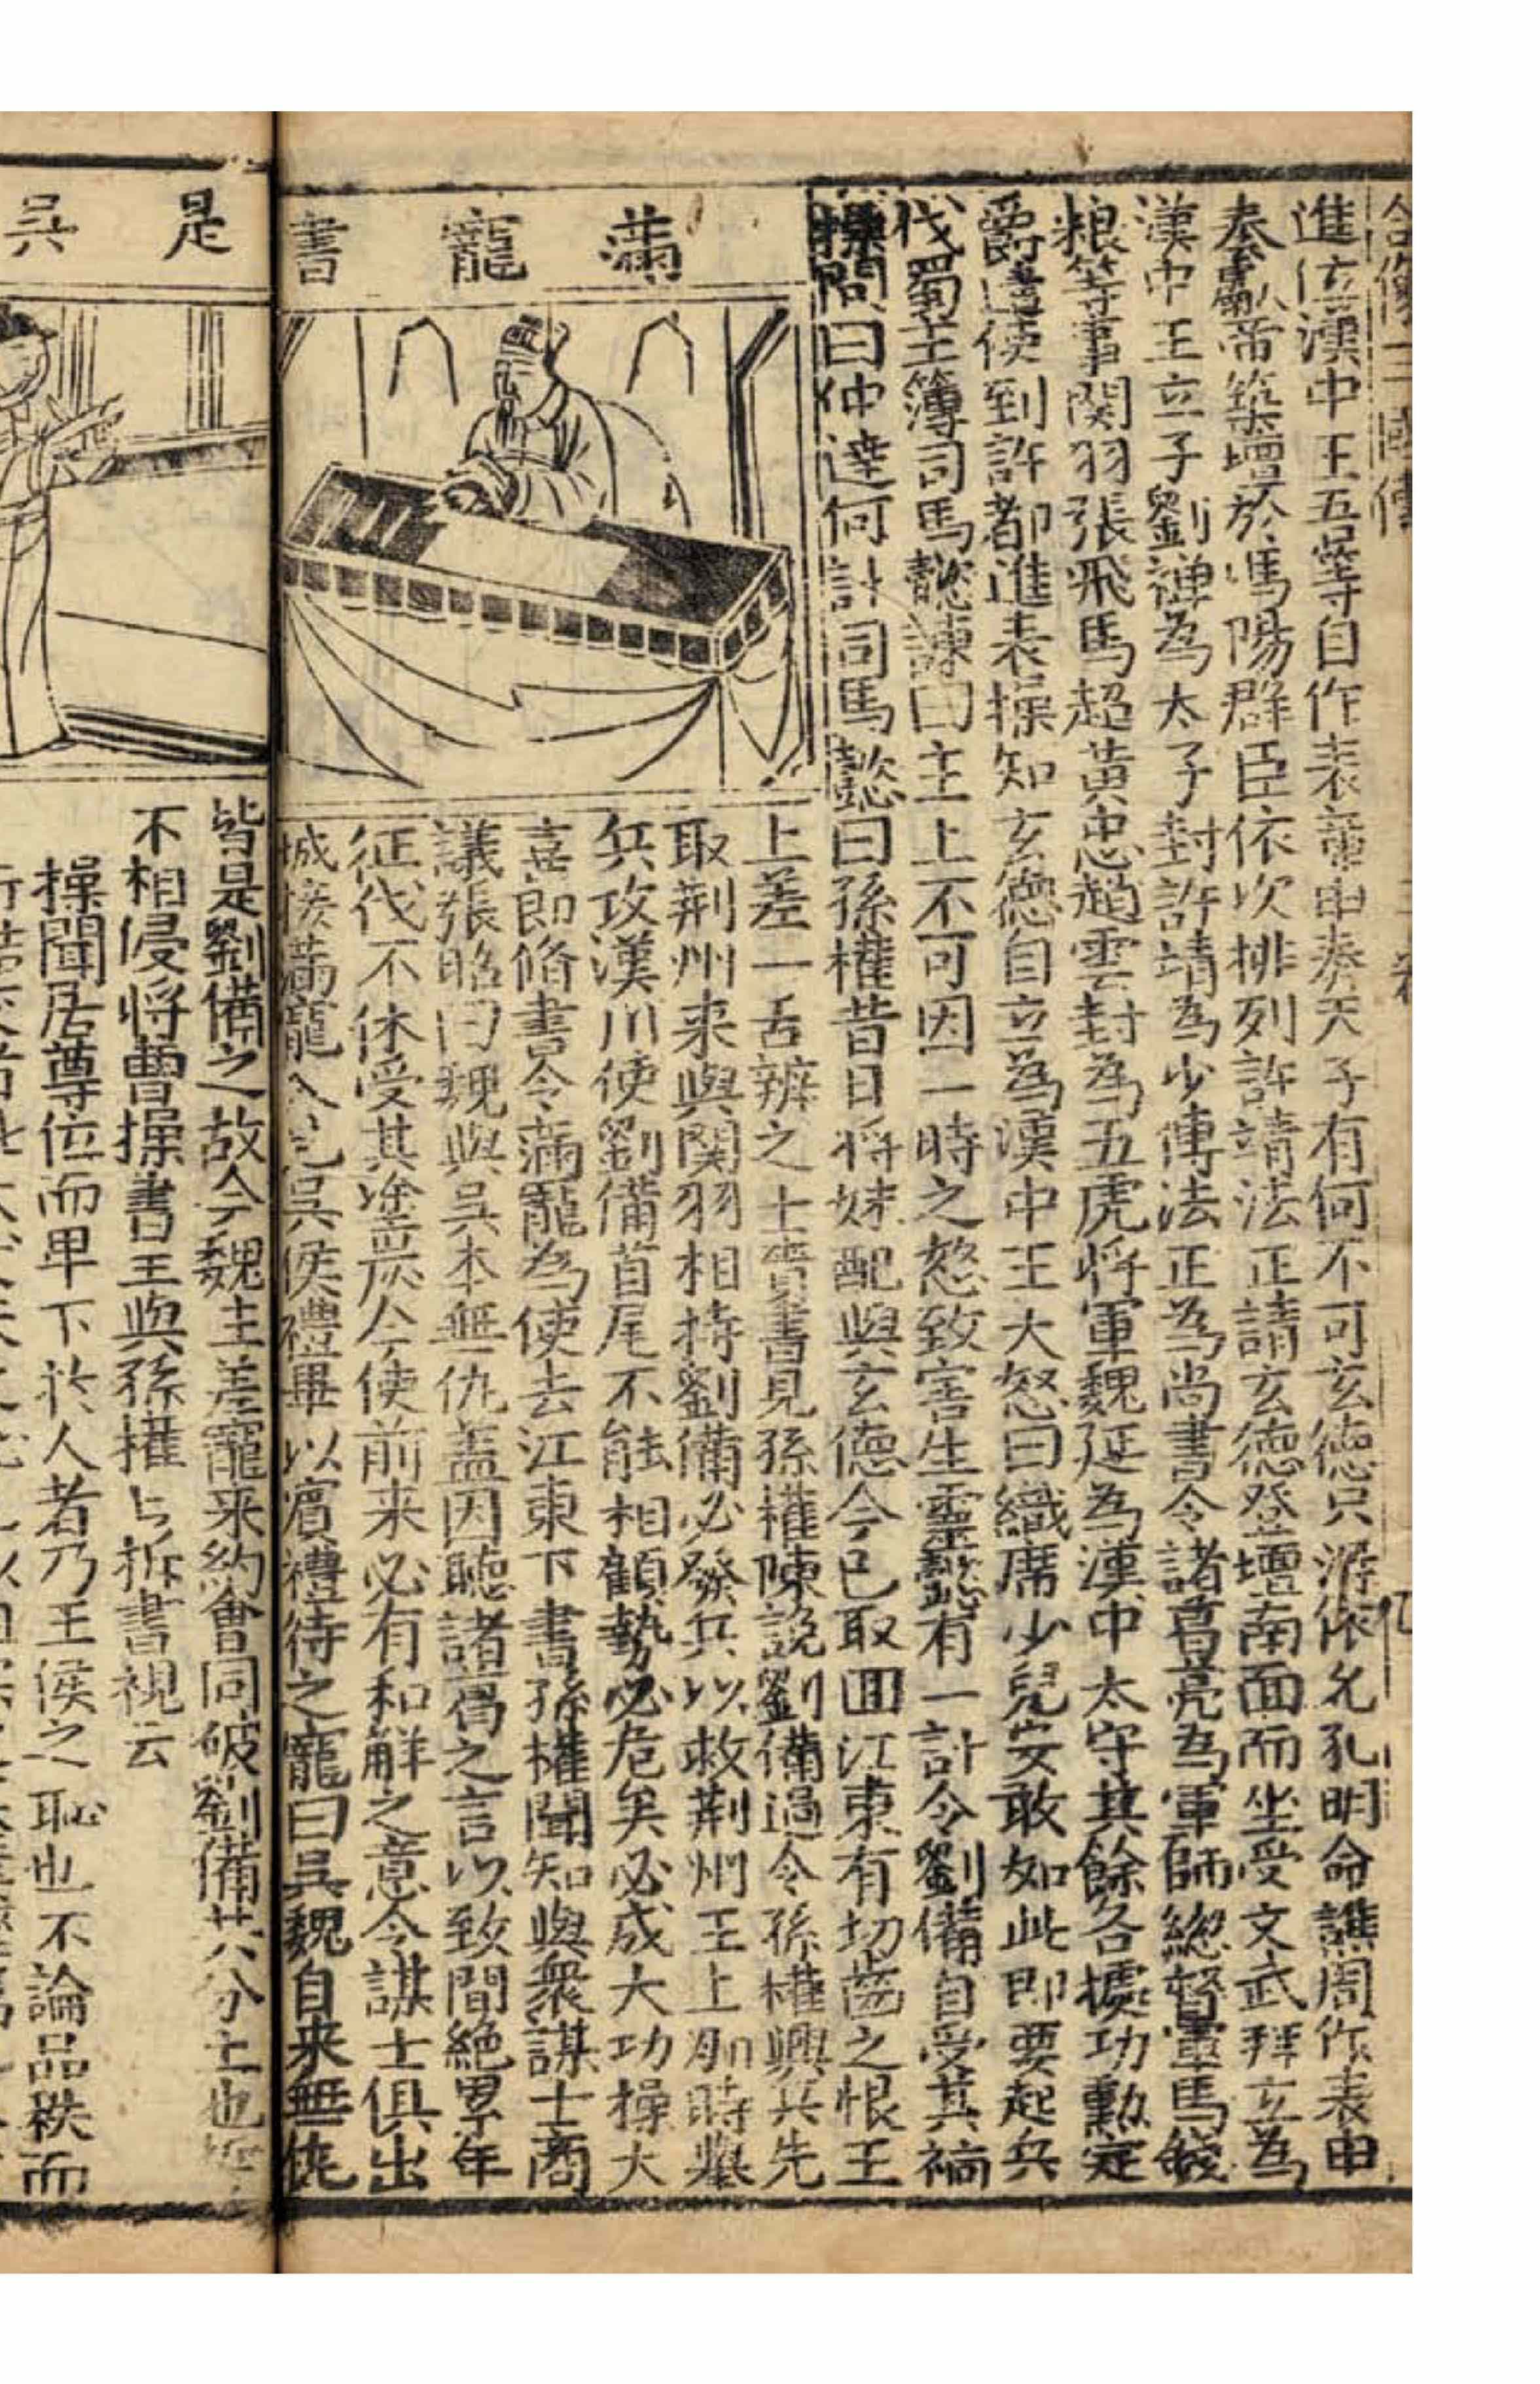 全像三國傳
卷
進位漢中王吾等自作表章申奏天子有何不可玄德只得依允孔明命譙周作表申
奏獻帝築壇於沔陽群臣依次排列許靖法正請玄德登壇南面而坐受文武拜立為
漢中王立子劉禪為太子封許靖為少傅法正為尚書令諸葛亮為軍師緫督軍馬錢
粮等事関羽張飛馬超黃忠趙雲封為五虎將軍魏延為漢中太守其餘各據功勲定
爵遣使到許都進表操知玄德自立為漢中王大怒曰織席少兒安敢如此即要起兵
伐蜀主簿司馬懿諫曰主上不可因一時之怒致害生靈懿有一計令劉備自受其禍
操問曰仲達何計司馬懿曰孫權昔日將妹配與玄德今已取囬江東有切齒之恨王
上差一舌辨之士賫書見孫權陳說劉備過令孫權興兵先
取荆州来與関羽相持劉備必發兵以救荆州王上那時舉
兵攻漢川使劉備首尾不能相顧勢必危矣必成大功操大
喜即脩書令滿寵為使去江東下書孫權聞知與衆謀士商
議張昭曰魏與吳本無仇盖因聽諸葛之言以致間絕累年
征伐不休受其塗炭今使前来必有和解之意令謀士俱出
城接滿寵入見吳侯禮畢以賔禮待之寵曰吳魏自来無仇
滿寵書
是吳
皆是劉備之故今魏主差寵来約會同破劉備共分土也
不相侵將曹操書王與孫權上拆書視云
操聞居尊位而卑下於人者乃王侯之恥也不論品秩而